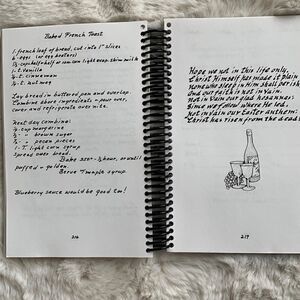 Baked French Toast
1- french loaf of bread, cut into 1" slices
6 - eggs (or egg beaters)
1 t. vanilla
½ t. cinnamon
¼ t. nutmeg
Lay bread in buttered pan and overlap.
Combine above ingredients - pour over,
cover and refrigerate over nite.
Next day combine:
½ cup margarine
½ " brown sugar
" pecan pieces
1 - T. light corn syrup
Spread over bread.
Bake 350° ½ hour, or until
puffed & golden.
Serve T maple syrup
Blueberry sauce would be good too!
216
Hope we nd in this life only,
Christ Himself has made it plain
None who sleep in Him shall perish
And our faith is not in vain.
Not in vain our glad hosannas:
Since we follow where He led,
Not in vain our Easter anthem:
"Christ has risen from the dead!
217